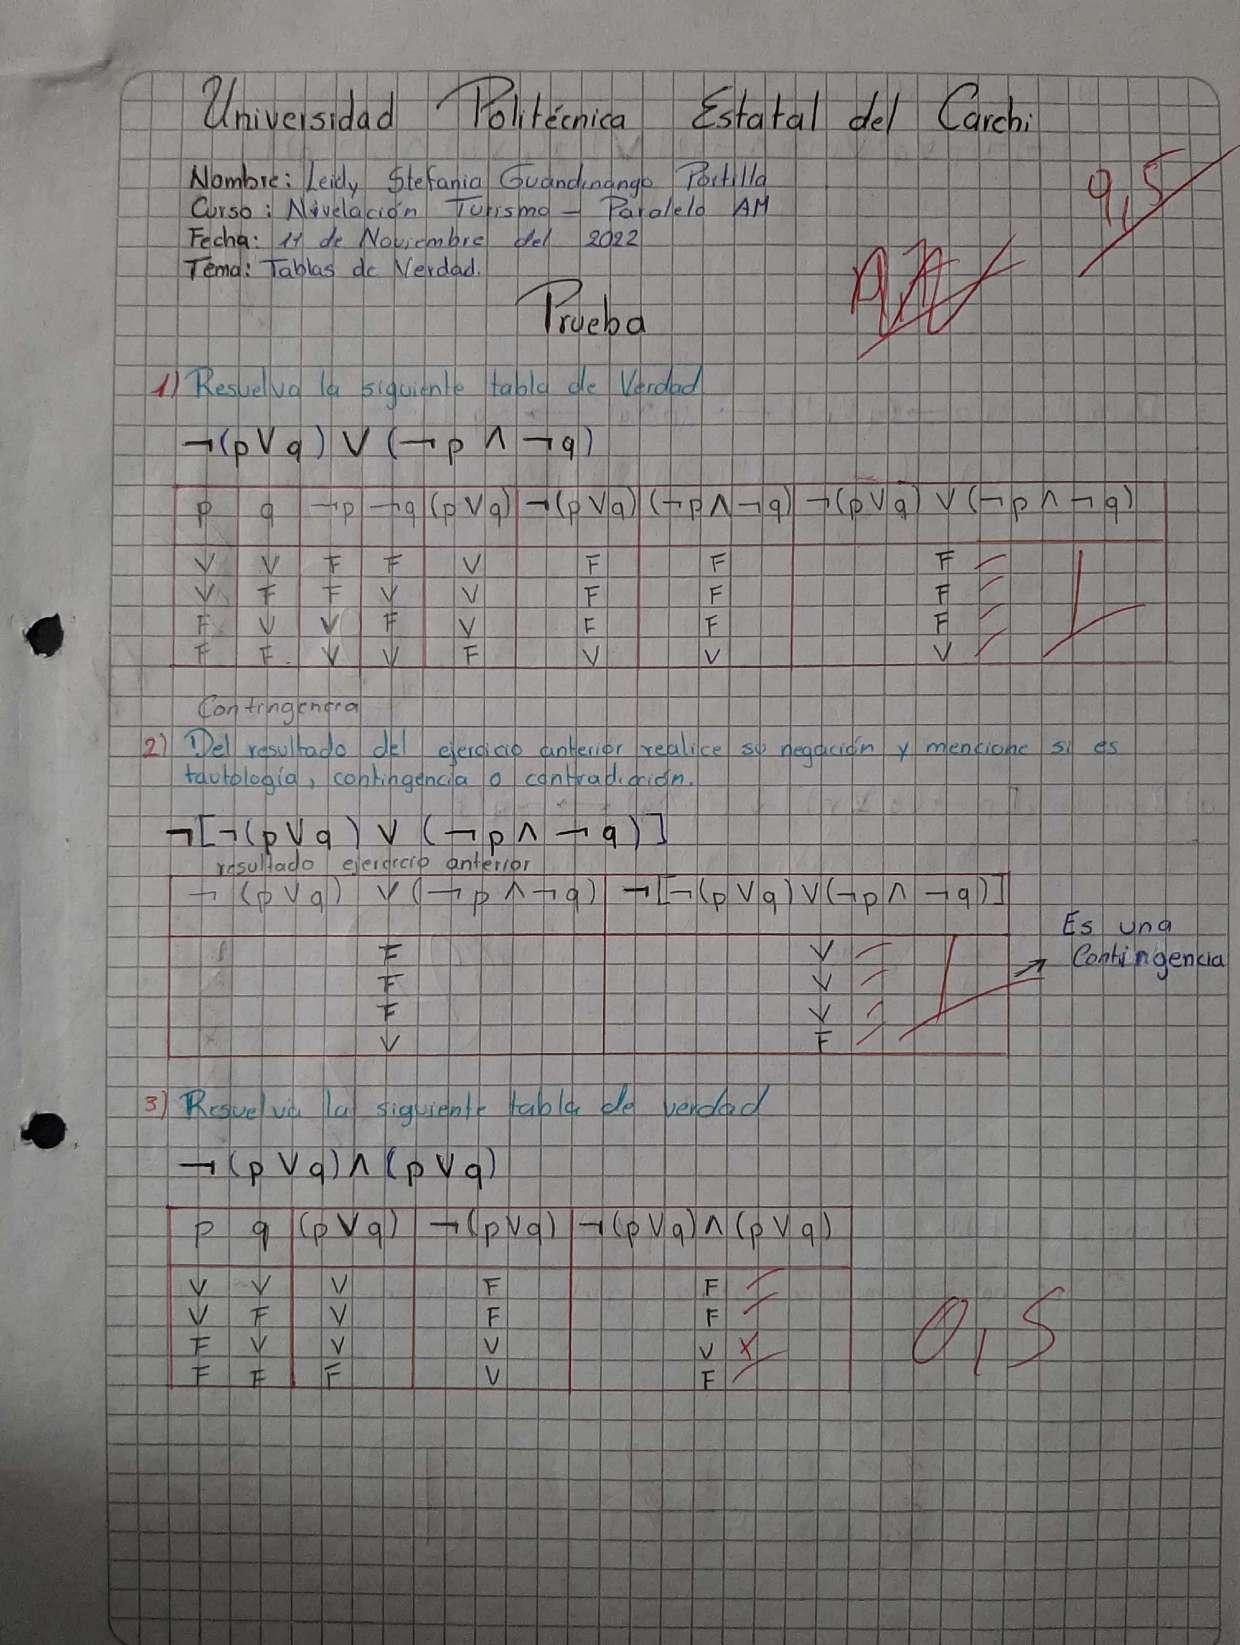 Universidad Politécnica Estatal del Carchi
Nombre: Leidy Stefania Guandinango Portilla
9,5
Curso: Nivelación Turismo - Paralelo AM
Fecha: 11 de Noviembre del 2022
Tema: Tablas de Verdad.
Prueba
1) Resuelva la siguiente tabla de Verdad
¬(p∨q) ∨ (¬p ∧ ¬q)
p q ¬p ¬q (p∨q) ¬(p∨q) (¬p∧¬q) ¬(p∨q) ∨ (¬p ∧ ¬q)
V V F F V F F F
V F F V V F F F
F V V F V F F F
F F V V F V V V
1
Contingencia
2) Del resultado del ejercicio anterior realice su negación y mencione si es
tautología, contingencia o contradicción.
¬[¬(p∨q) ∨ (¬p∧¬q)]
resultado ejercicio anterior
¬(p∨q) ∨ (¬p∧¬q) ¬[¬(p∨q)∨(¬p∧ ¬q)]
F V
F V
F V
V F
1
→ Es una
Contingencia
3) Resuelva la siguiente tabla de verdad
¬(p∨q)∧(p∨q)
p q (p∨q) ¬(p∨q) ¬(p∨q)∧(p∨q)
V V V F F
V F V F F
F V V V V x
F F F V F
0,5